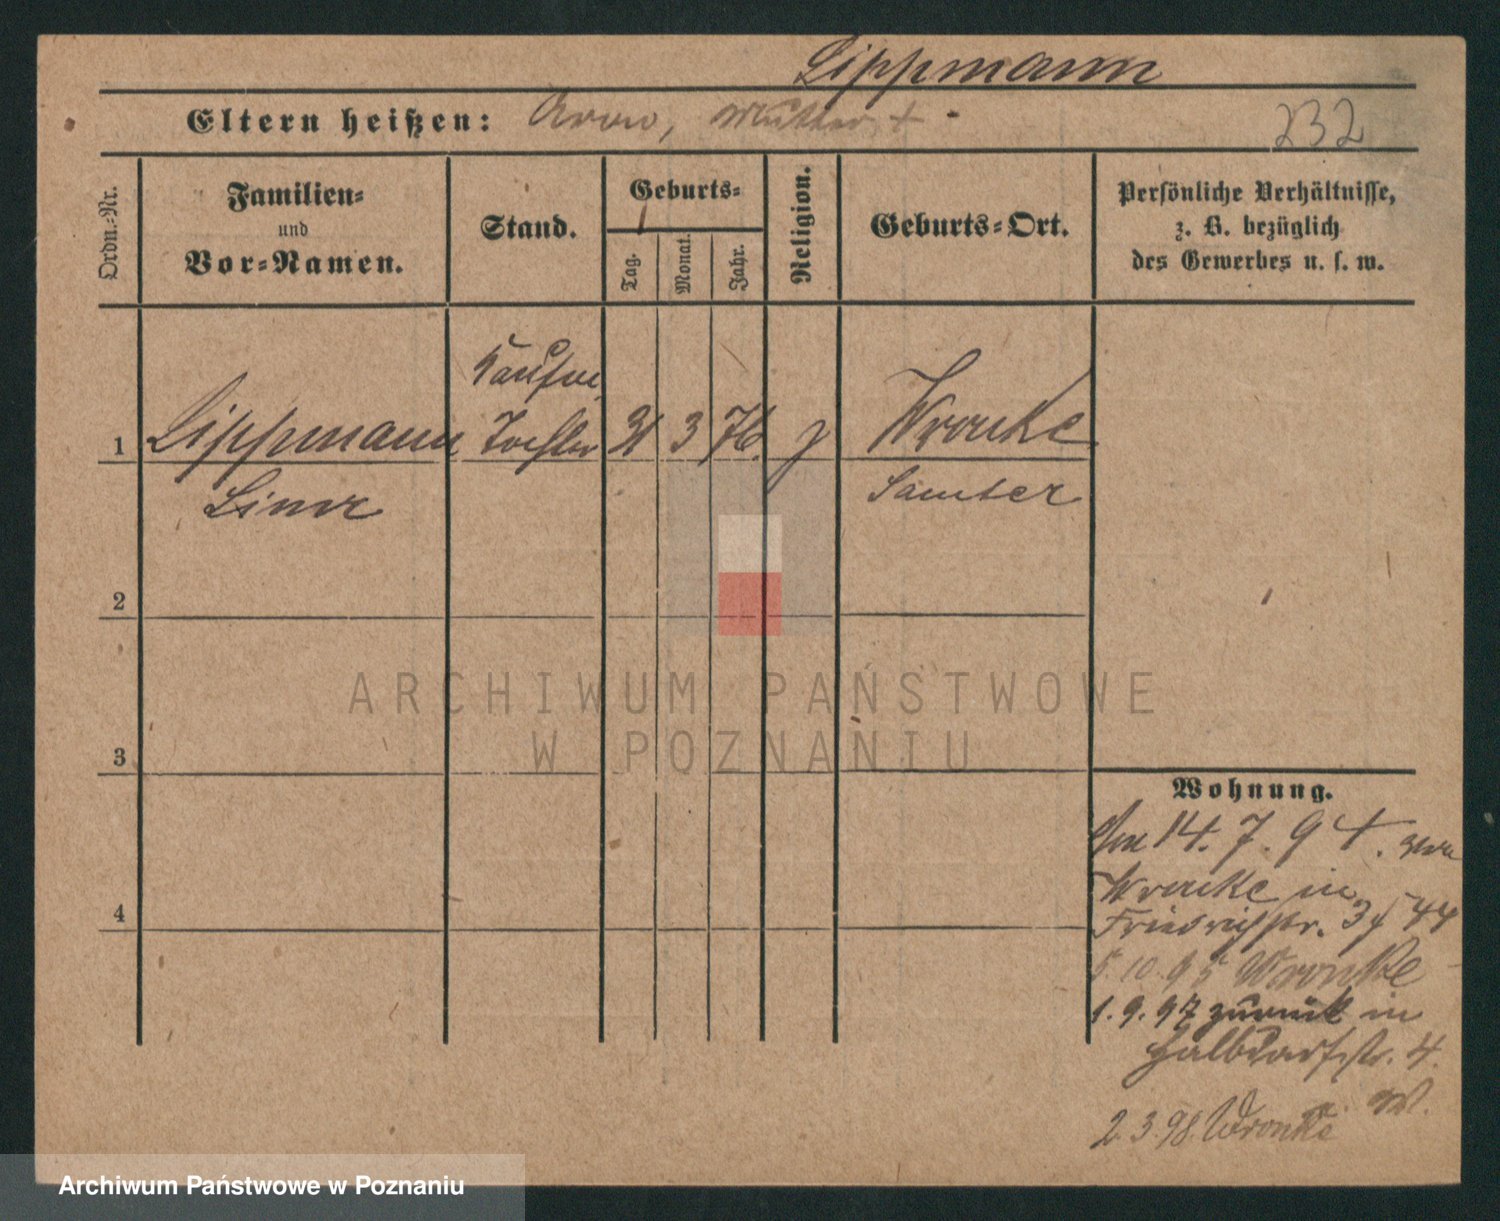 Lippmann
Eltern heißen: Aron, Mutter +
232
Ordn.-Nr.
Familien-
und
Vor-Namen.
Stand.
Geburts-
Tag.
Monat.
Jahr.
Religion.
Geburts-Ort.
Persönliche Verhältnisse,
z. B. bezüglich
des Gewerbes u. s. w.
Kaufm
1 Lippmann Tochter 3 76. j Wronke
Samter
2
3
4
Wohnung.
14. 7. 94. von
Wronke in
Friedrichstr.
10. 95 Wronke
1. 9. 97 zurück in
Halbdorfstr. 4.
2. 3. 98. Wronke
ARCHIWUM PAŃSTWOWE
W POZNANIU
Archiwum Państwowe w Poznaniu